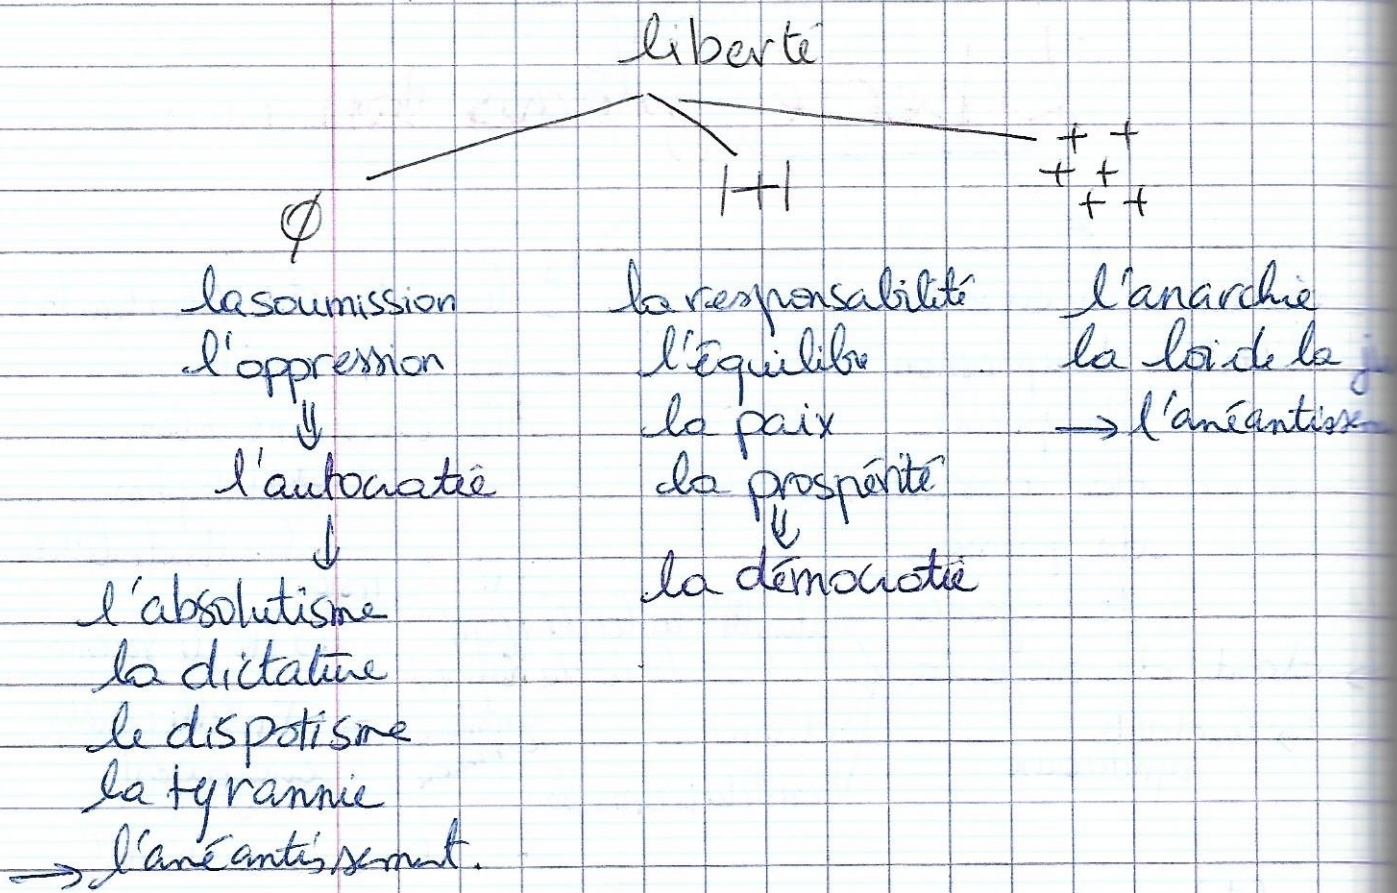 liberté
∅
|+|
+ +
+ +
+ +
la soumission
l'oppression
⇓
l'autocratie
↓
l'absolutisme
la dictature
le dispotisme
la tyrannie
→ l'anéantissement.
la responsabilité
l'équilibre
la paix
la prospérité
⇓
la démocratie
l'anarchie
la loi de la
→